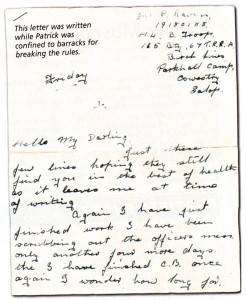 This letter was written
while Patrick was
confined to barracks for
breaking the rules.
Gnr P. Raven
H.Q. B. Troop,
185 Bty, 64 T.R.R.A
Birch Lines
Parkhall Camp,
Oswestry
Salop.
Friday
Hello My Darling
Just these
few lines hoping they still
find you in the best of health
as it leaves me at time
of writing
Again I have just
finished work I have been
scrubbing out the officers mess
only another four more days
the I have finished C.B. once
again I wonder how long for.